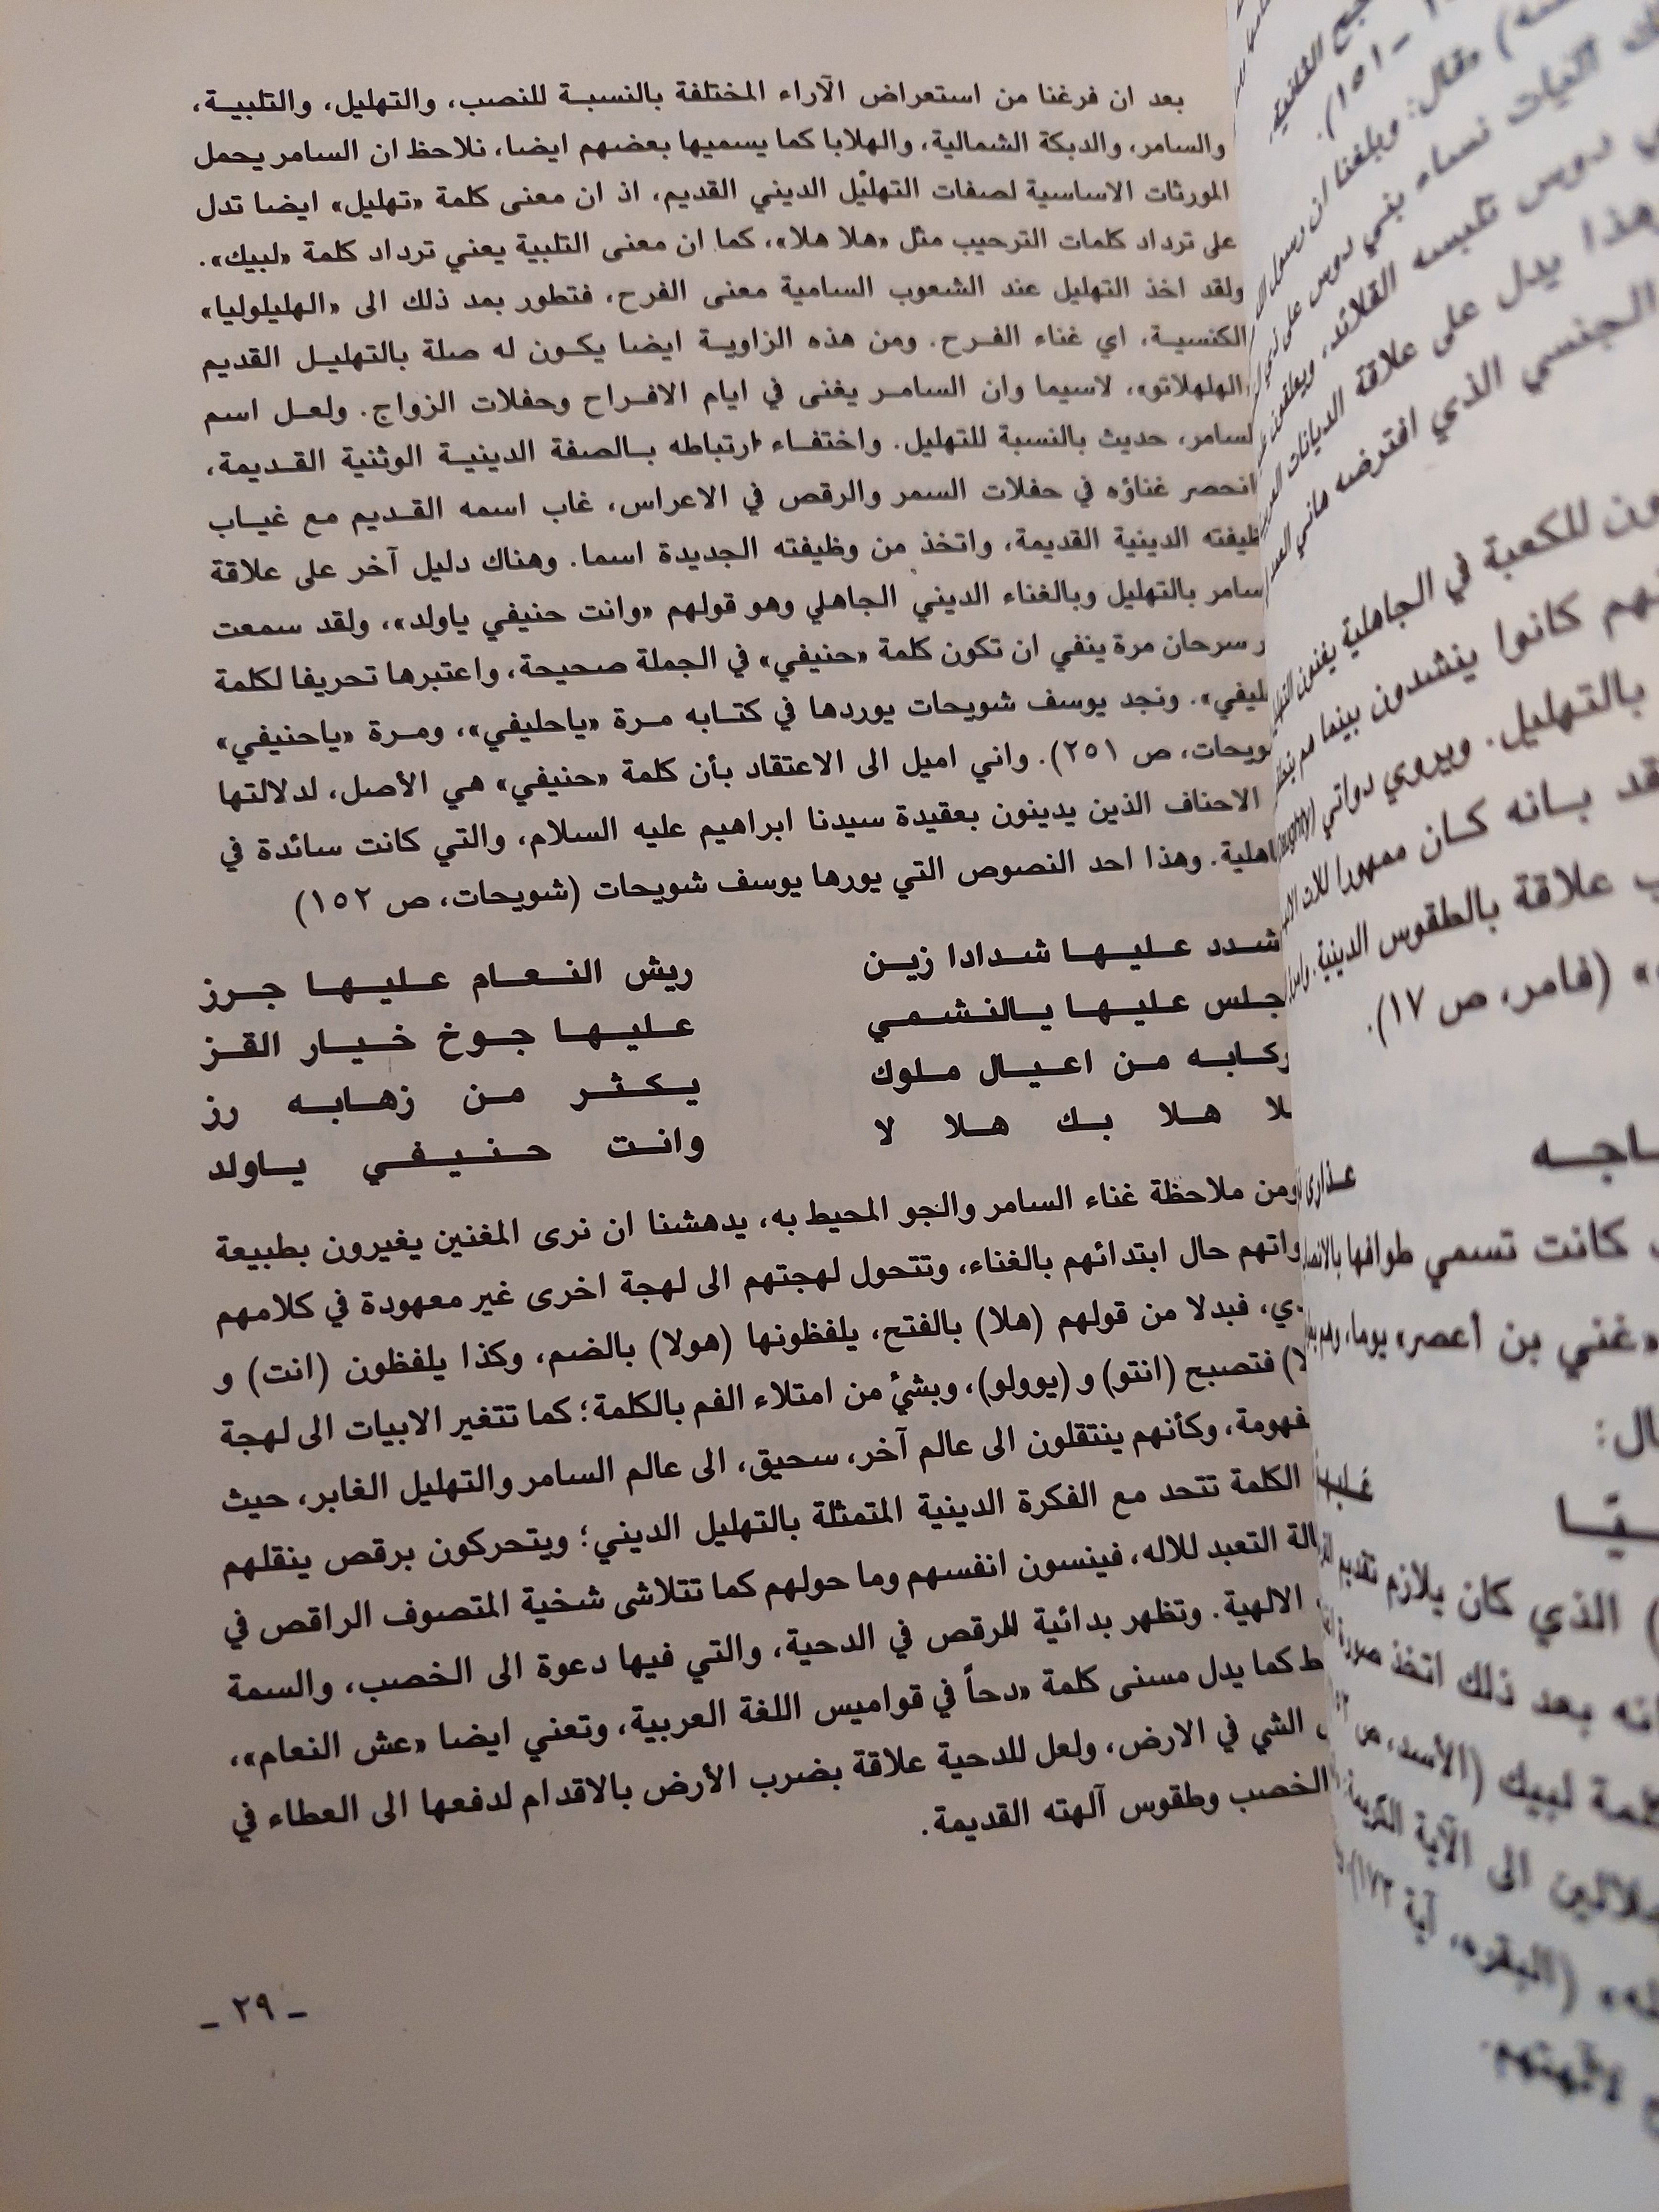 بعد ان فرغنا من استعراض الآراء المختلفة بالنسبة للنصب، والتهليل، والتلبية،
والسامر، والدبكة الشمالية، والهلابا كما يسميها بعضهم ايضا، نلاحظ ان السامر يحمل
المورثات الاساسية لصفات التهليل الديني القديم، اذ ان معنى كلمة «تهليل» ايضا تدل
على ترداد كلمات الترحيب مثل «هلا هلا»، كما ان معنى التلبية يعني ترداد كلمة «لبيك».
ولقد اخذ التهليل عند الشعوب السامية معنى الفرح، فتطور بعد ذلك الى «الهليلوليا»
الكنسية، اي غناء الفرح. ومن هذه الزاوية ايضا يكون له صلة بالتهليل القديم
الهلهلاتو»، لاسيما وان السامر يغنى في ايام الافراح وحفلات الزواج. ولعل اسم
لسامر، حديث بالنسبة للتهليل. واختفاء ارتباطه بالصفة الدينية الوثنية القديمة،
انحصر غناؤه في حفلات السمر والرقص في الاعراس، غاب اسمه القديم مع غياب
ظيفته الدينية القديمة، واتخذ من وظيفته الجديدة اسما. وهناك دليل آخر على علاقة
سامر بالتهليل وبالغناء الديني الجاهلي وهو قولهم «وانت حنيفي ياولد»، ولقد سمعت
ر سرحان مرة ينفي ان تكون كلمة «حنيفي» في الجملة صحيحة، واعتبرها تحريفا لكلمة
ليفي». ونجد يوسف شويحات يوردها في كتابه مرة «ياحليفي»، ومرة «ياحنيفي»
ويحات، ص ٢٥١). واني اميل الى الاعتقاد بأن كلمة «حنيفي» هي الأصل، لدلالتها
الاحناف الذين يدينون بعقيدة سيدنا ابراهيم عليه السلام، والتي كانت سائدة في
اهلية. وهذا احد النصوص التي يورها يوسف شويحات (شويحات، ص ١٥٢)
شدد عليها شدادا زين ريش النعام عليها جرز
جلس عليها يالنشمي عليها جوخ خيار القز
ركابه من اعيال ملوك يكثر من زهابه رز
لا هلا بك هلا لا وانت حنيفي ياولد
ومن ملاحظة غناء السامر والجو المحيط به، يدهشنا ان نرى المغنين يغيرون بطبيعة
واتهم حال ابتدائهم بالغناء، وتتحول لهجتهم الى لهجة اخرى غير معهودة في كلامهم
دي، فبدلا من قولهم (هلا) بالفتح، يلفظونها (هولا) بالضم، وكذا يلفظون (انت) و
لا) فتصبح (انتو) و (يوولو)، وبشئ من امتلاء الفم بالكلمة؛ كما تتغير الابيات الى لهجة
فهومة، وكأنهم ينتقلون الى عالم آخر، سحيق، الى عالم السامر والتهليل الغابر، حيث
الكلمة تتحد مع الفكرة الدينية المتمثلة بالتهليل الديني؛ ويتحركون برقص ينقلهم
الة التعبد للاله، فينسون انفسهم وما حولهم كما تتلاشى شخية المتصوف الراقص في
الالهية. وتظهر بدائية للرقص في الدحية، والتي فيها دعوة الى الخصب، والسمة
ط كما يدل مسنى كلمة «دحاً في قواميس اللغة العربية، وتعني ايضا «عش النعام»،
الشي في الارض، ولعل للدحية علاقة بضرب الأرض بالاقدام لدفعها الى العطاء في
الخصب وطقوس آلهته القديمة.
ـ ٢٩ ـ
وقال: وبلغنا ان رسول
اليات نساء بني دوس على
دوس تلبسه القلائد، ويعلقون
هذا يدل على علاقة الديانات
الجنسي الذي افترضه هاني
ون للكعبة في الجاهلية يغنون
هم كانوا ينشدون بينما هم
بالتهليل. ويروي دواتي
قد بانه كان ممهورا للات
علاقة بالطقوس الدينية.
(فامر، ص ١٧).
اجه عذارى
كانت تسمي طوافها
«غني بن أعصر» يوما، وهم
ال:
الذي كان يلازم تقديم
انه بعد ذلك اتخذ صورة
لمة لبيك (الأسد، ص
لجلالين الى الآية الكريمة
(البقره، آية ١٧٣)
لآلهتهم.